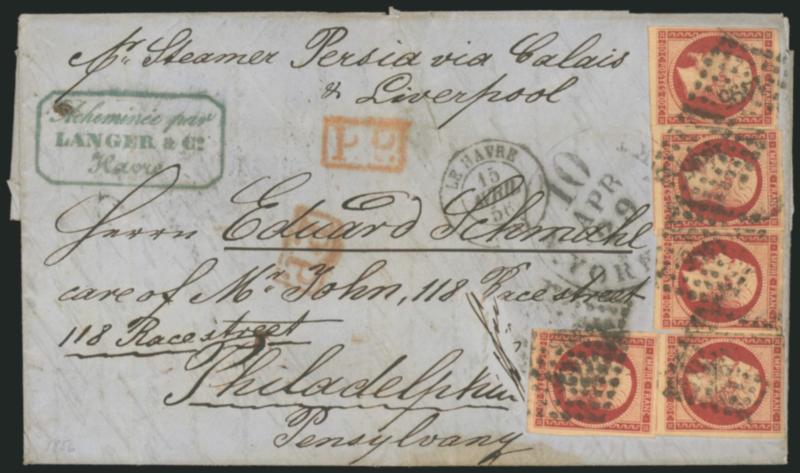 Pr. Steamer Persia via Calais
& Liverpool
Acheminée par
LANGER & Co.
Havre
P.D.
LE HAVRE
15
AVRIL
56
10
APR
29
N. YORK
P.P.
Herrn Eduard Schmahl
care of Mr. John, 118 Race street
118 Race street
Philadelphia
Pensylvany
1856